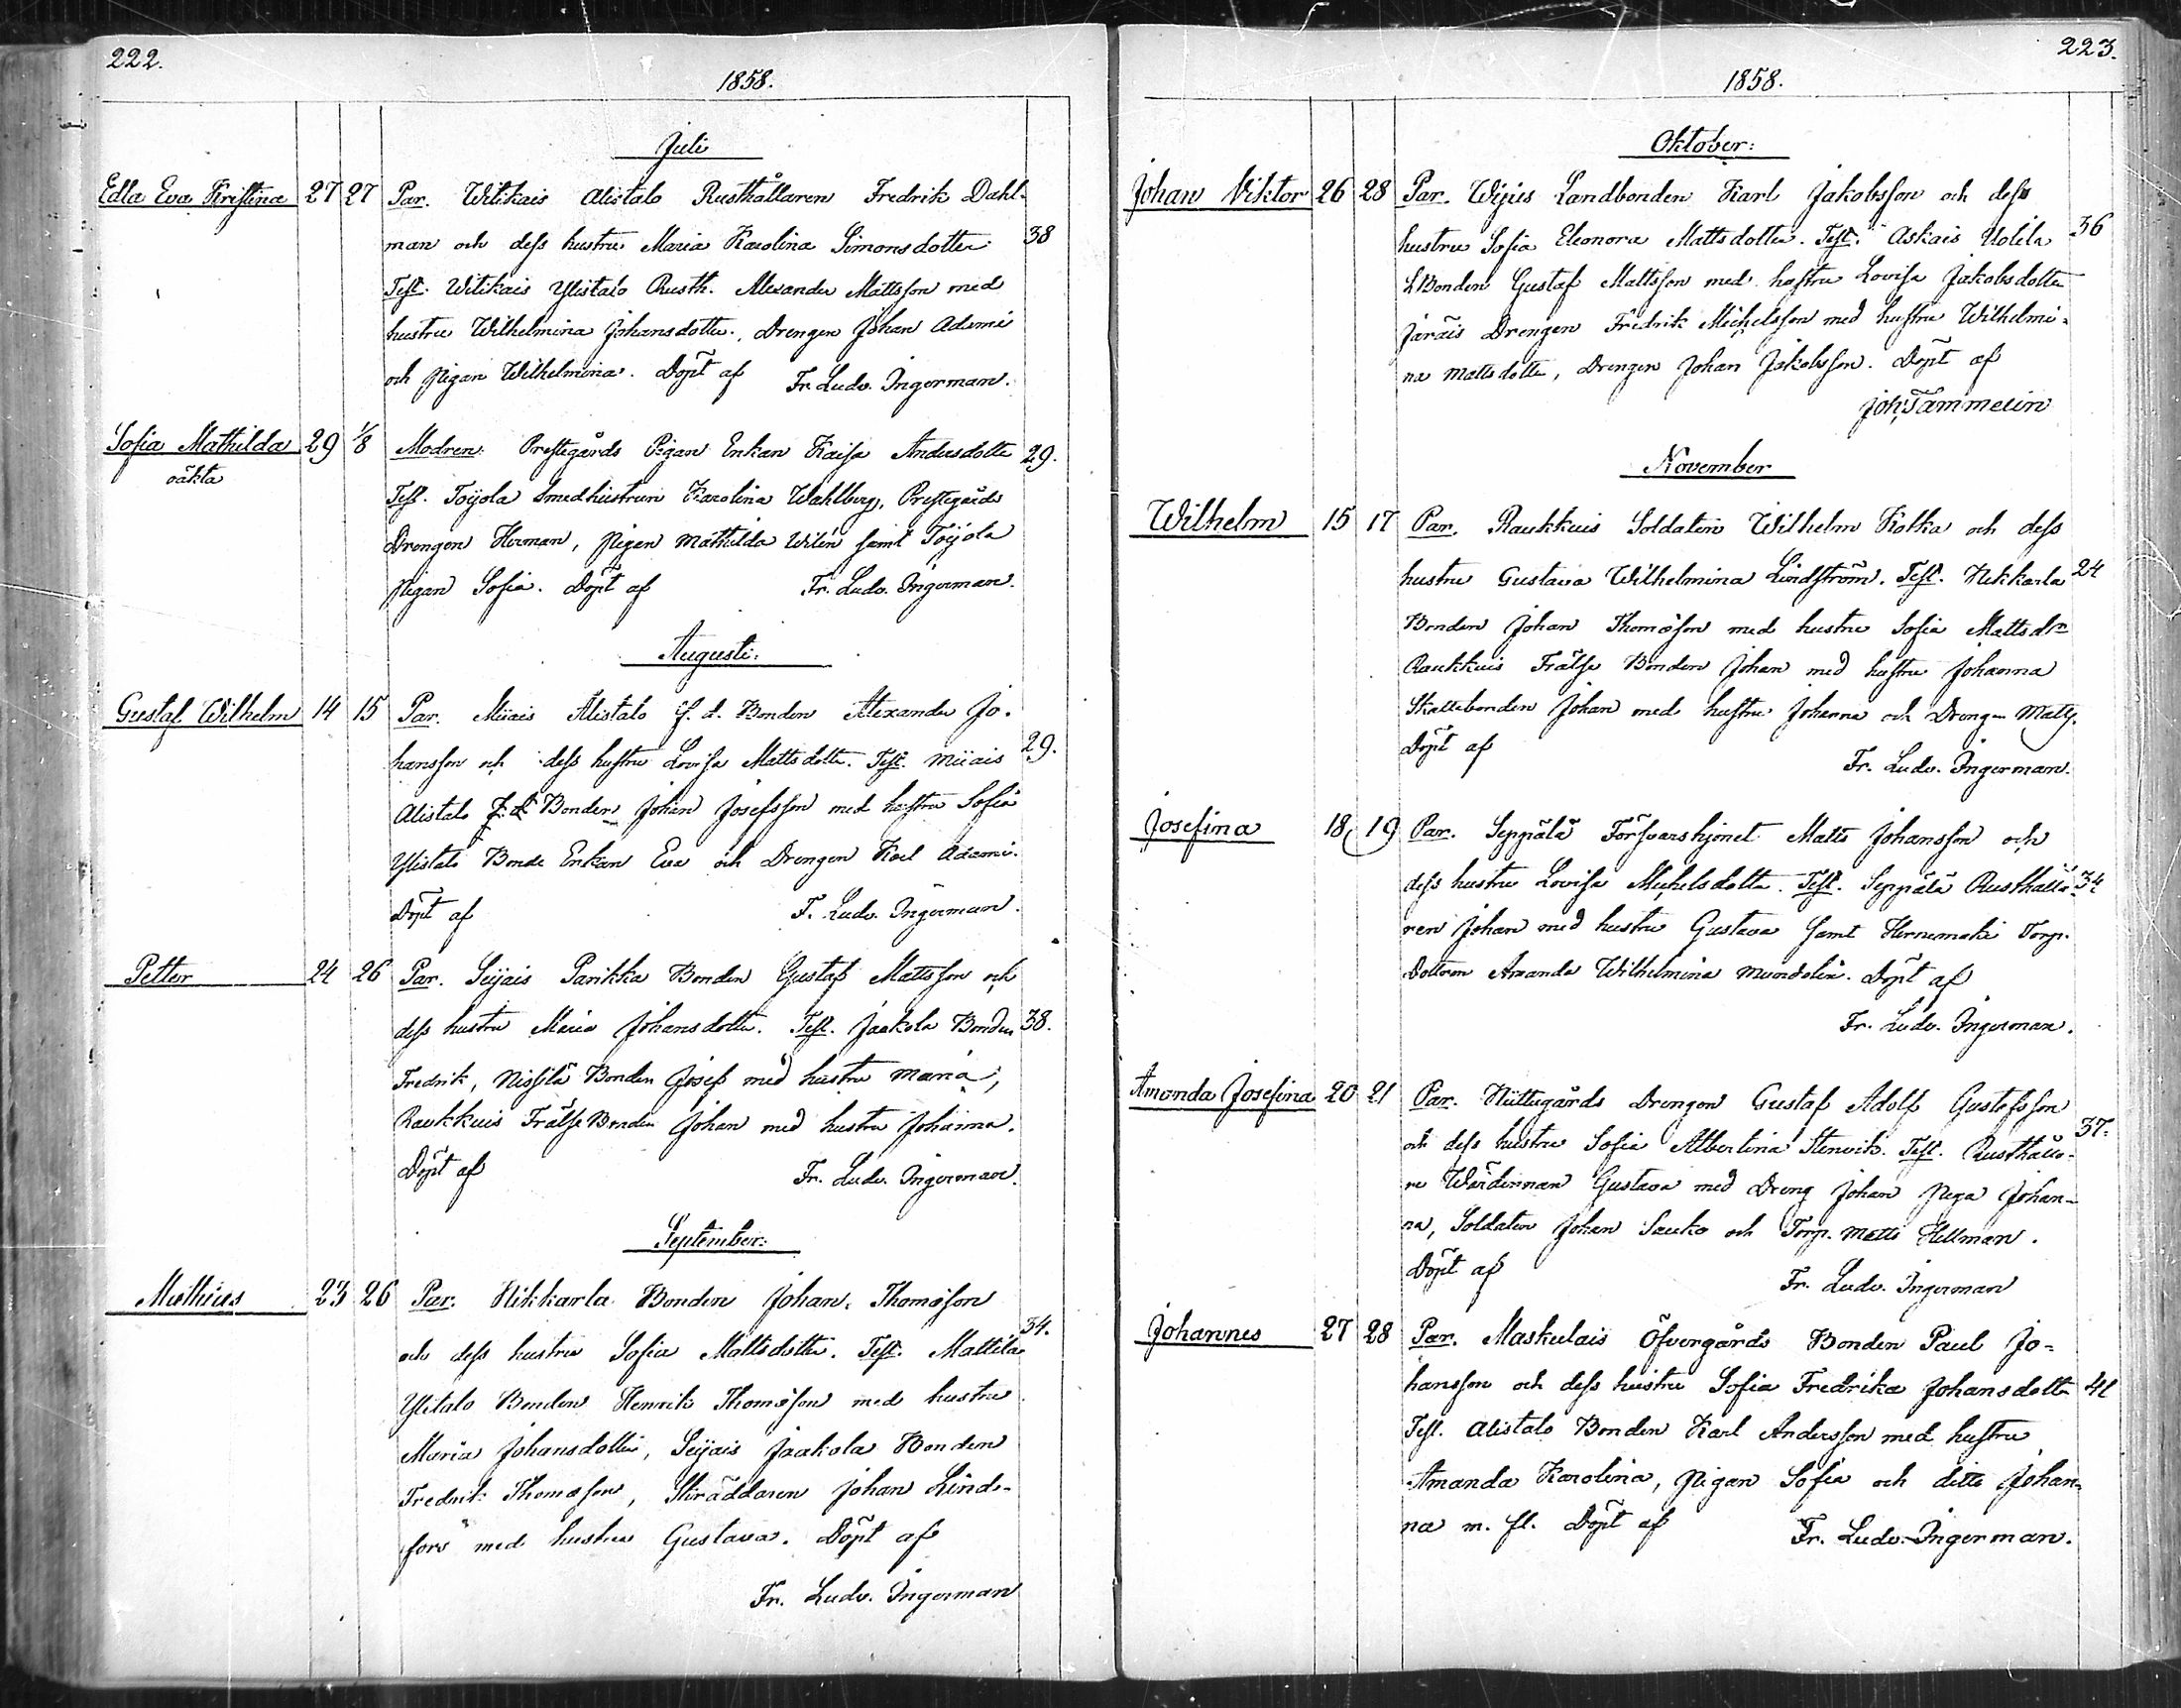 222.
1858.
Juli
Edla Eva Kristina 27 27 Par. Witikais Alistalo Rusthållaren Fredrik Dahl-
man och dess hustru Maria Karolina Simonsdotter 38
Test. Witikais Ylistalo Rusth. Alexander Mattsson med
hustru Wilhelmina Johansdotter, Drengen Johan Adami
och Pigan Wilhelmina. Döpt af Fr. Ludv. Ingerman.
Sofia Mathilda 29 1/8 Modren. Prestegårds Pigan Enkan Kaisa Andersdotter 29.
oäkta
Test. Toijola Smedhustrun Karolina Wahlberg, Prestegårds
Drengen Herman, Pigan Mathilda Wilén samt Toijola
Pigan Sofia. Döpt af Fr. Ludv. Ingerman.
Augusti.
Gustaf Wilhelm 14 15 Par. Miiais Alistalo f. d. Bonden Alexander Jo-
hansson och dess hustru Lovisa Mattsdotter. Test. Miiais 29.
Alistalo f. d. Bonden Johan Josefsson med hustru Sofia
Ylistalo Bonde Enkan Eva och Drengen Karl Adami.
Döpt af F. Ludv. Ingerman.
Petter 24 26 Par. Seijais Parikka Bonden Gustaf Mattsson och
dess hustru Maria Johansdotter. Test. Jaakola Bonden 38.
Fredrik, Nissilä Bonden Josef med hustru Maria,
Raukkuis Frälse Bonden Johan med hustru Johanna.
Döpt af Fr. Ludv. Ingerman.
September:
Mathias 23 26 Par. Hikkarla Bonden Johan Thomsson
och dess hustru Sofia Mattsdotter. Test. Mattila 34.
Ylitalo Bonden Henrik Thomsson med hustru
Maria Johansdotter, Seijais Jaakola Bonden
Fredrik Thomasson, Skräddaren Johan Linds-
fors med hustru Gustava. Döpt af
Fr. Ludv. Ingerman
223.
1858.
Oktober:
Johan Viktor 26 28 Par. Wijus Landbonden Karl Jakobsson och dess
hustru Sofia Eleonora Mattsdotter. Test. Askais Uolila 36
LBonden Gustaf Mattsson med hustru Lovisa Jakobsdotter
Järäis Drengen Fredrik Michelsson med hustru Wilhelmi-
na Mattsdotter, Drengen Johan Jakobsson. Döpt af
Joh: Tammelin
November
Wilhelm 15 17 Par. Raukkuis Soldaten Wilhelm Kotka och dess
hustru Gustava Wilhelmina Lindström. Test. Hikkarla 24
Bonden Johan Thomsson med hustru Sofia Mattsdr
Raukkuis Frälse Bonden Johan med hustru Johanna
Skattebonden Johan med hustru Johanna och Drengen Matts.
Döpt af
Fr. Ludv. Ingerman.
Josefina 18 19 Par. Seppälä Försvarshjonet Matts Johansson och
dess hustru Lovisa Michelsdotter. Test. Seppälä Rusthålla- 34
ren Johan med hustru Gustava samt Hernemäki Torp.
Dottren Amanda Wilhelmina Mundelin. Döpt af
Fr. Ludv. Ingerman.
Amanda Josefina 20 21 Par. Nuttegårds Drengen Gustaf Adolf Gustafsson
och dess hustru Sofia Albertina Stenvik. Test. Rusthålla- 37.
re Wärdinnan Gustava med Dreng Johan Piga Johan-
na, Soldaten Johan Sauko och Torp. Matts Hellman.
Döpt af
Fr. Ludv. Ingerman
Johannes 27 28 Par. Maskulais Öfvergårds Bonden Paul Jo-
hansson och dess hustru Sofia Fredrika Johansdotter 41
Test. Alistalo Bonden Karl Andersson med hustru
Amanda Karolina, Pigan Sofia och ditto Johan-
na m. fl. Döpt af Fr. Ludv. Ingerman.